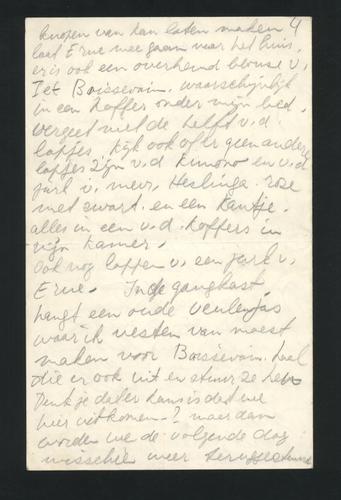 4
knopen van kan laten maken
laat Erne mee gaan naar het huis,
er is ook een overhemd blouse v.
Jet Boissevain, waarschijnlijk
in een koffer onder mijn bed.
vergeet niet de helft v.d.
lapjes, kijk ook of er geen andere
lapjes zijn v.d. kimono en v.d
jurk v. mevr. Heslinga. rose
met zwart. en een kantje.
alles in een v.d. koffers in
mijn kamer.
Ook nog lappen v. een jurk v.
Erne. In de gangkast
hangt een oude
waar ik vesten van moest
maken voor Boissevain. haal
die er ook uit en stuur ze hem
Denk je dat er kans is dat we
hier uitkomen? maar dan
worden we de volgende dag
misschien weer teruggestuurd